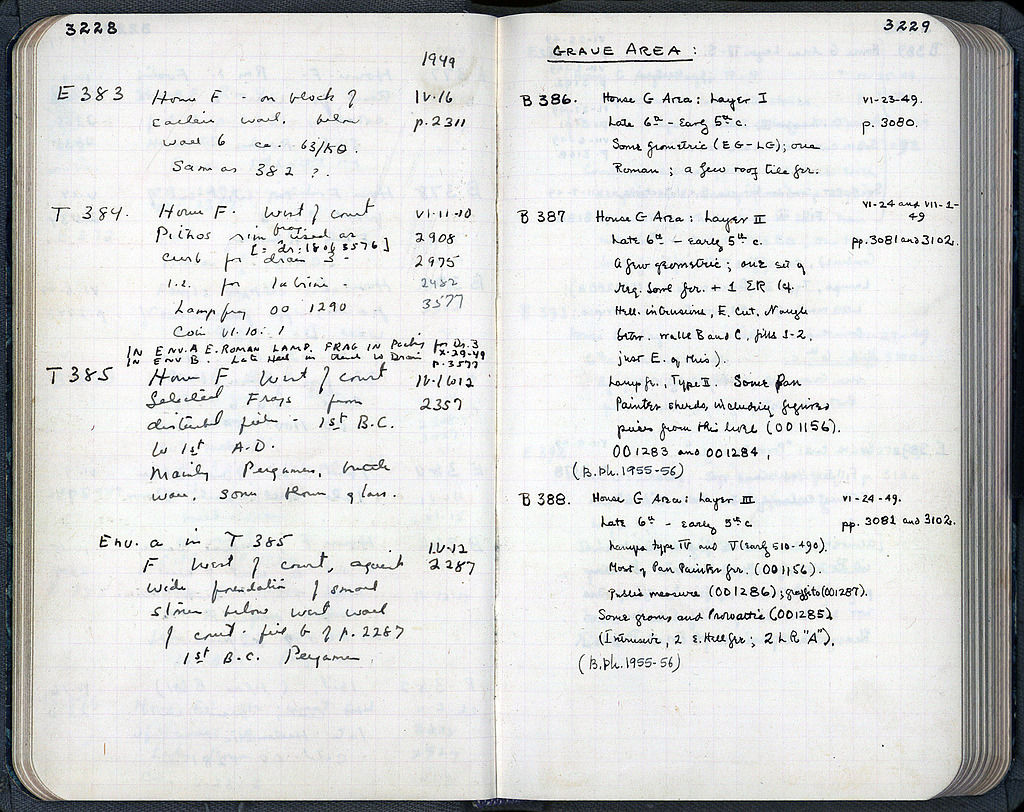 3228
1949
E 383 House F - on block of IV-16
eastern wall, below p. 2311
wall 6 ca. 63/ΚΘ.
Same as 382 ?.
T 384. House F. West of court VI-11-10
Pithos rim frag used as 2908
[= dr: 180 b 3576]
curb for drain 3 - 2975
i.e. for latrine - 2982
Lamp frag 00 1290 3577
Coin VI.10: 1
IN ENV. A E. ROMAN LAMP FRAG IN Packing for Dr. 3 X-29-49
IN ENV B. Late Hell in Drain p. 3577
T 385 House F West of court IV-16
Selected Frags from 2357
disturbed fill - 1st B.C.
to 1st A.D.
Mainly Pergamene,
ware, some glass.
Env. a in T 385 IV-12
F West of court, against 2287
wide foundation of small
stones below west wall
of court - p. 2287
1st B.C. Pergamene
3229
GRAVE AREA :
B 386. House G Area : Layer I VI-23-49.
Late 6th - Early 5th c. p. 3080.
Some geometric (EG-LG); one
Roman ; a few roof tile fgr.
B 387 House G Area : Layer II VI-24 and VII-1-49
Late 6th - Early 5th c. pp. 3081 and 3102.
A few geometric ; one set of
Meg. bowl fgr. + 1 ER l4.
Hell. intrusive, E. Cut. Nough
betw. walls B and C, fills 1-2,
just E. of this).
Lamp fr., Type II. Some Pan
Painter sherds, including figured
pieces from this level (001156).
001283 and 001284,
(B.Ph. 1955-56)
B 388. House G Area : Layer III VI-24-49.
Late 6th - Early 5th c pp. 3081 and 3102.
Lamps type IV and V (Early 510-490).
Most of Pan Painter fgr. (001156).
Public measure (001286) ; graffito (001287).
Some geoms and Protoattic (001285)
(Intrusive, 2 E. Hell fgr ; 2 LR "A"),
(B.Ph. 1955-56)